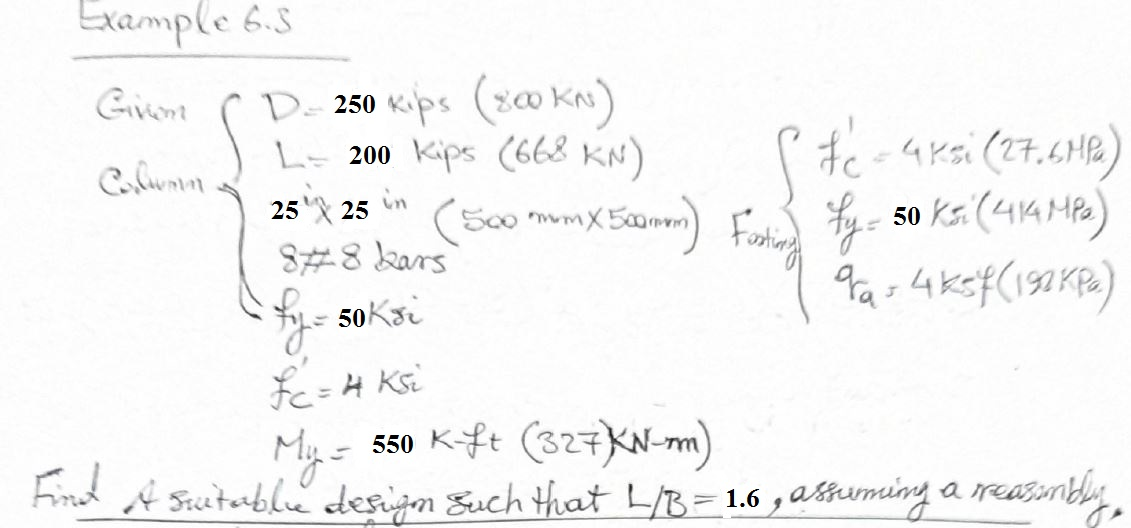 Example 6.3
Given
Column
D = 250 kips (800 KN)
L = 200 kips (668 KN)
25 in X 25 in (500 mm X 500 mm)
8#8 bars
fy = 50 Ksi
f'c = 4 Ksi
My = 550 K-ft (327) KN-m)
Footing
f'c = 4 Ksi (27.6 MPa)
fy = 50 Ksi (414 MPa)
qa = 4 ksf (192 KPa)
Find A suitable design such that L/B = 1.6, assuming a